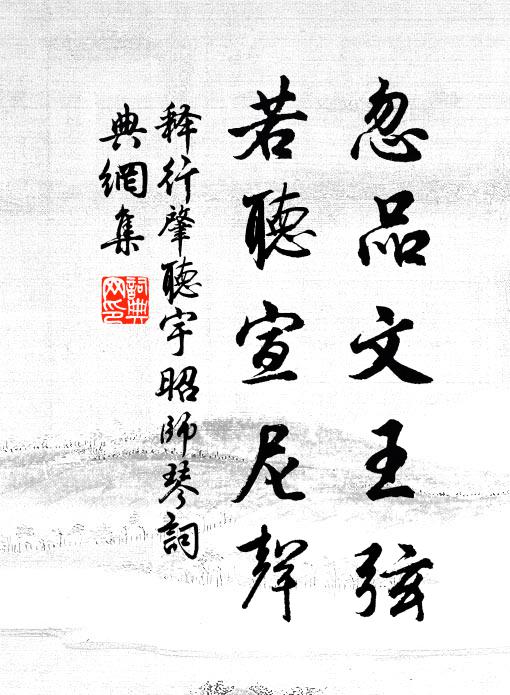 忽品文王弦
若聽宣尼聲
释行肇聽宇昭師琴詞
典網集
詞典
网印